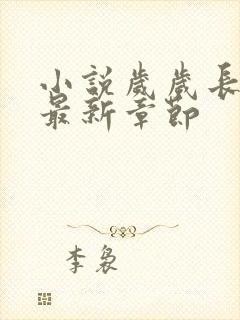 小説歲歲長
最新章節
李裊